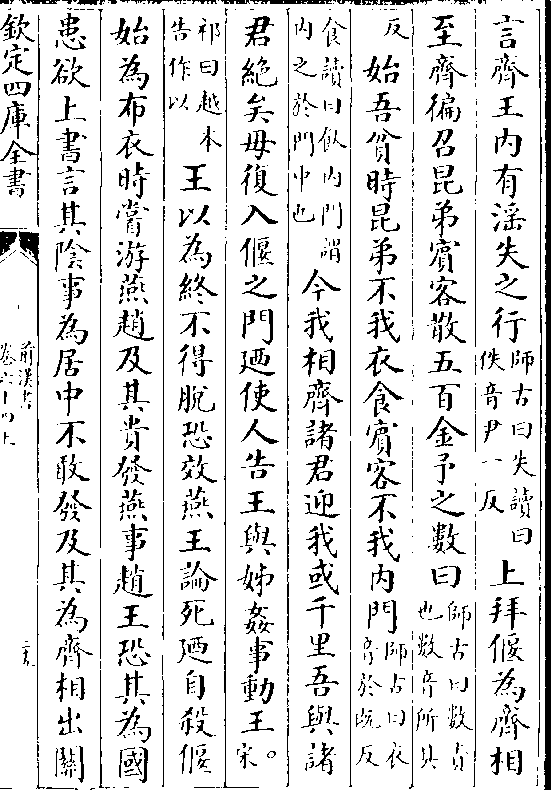 言齊王内有淫失之行師古曰失讀曰佚音尹一反上拜偃為齊相
至齊徧召昆弟賔客散五百金予之數曰師古曰數責也數音所具
反始吾貧時昆弟不我衣食賔客不我内門師古曰衣音於既反
食讀曰飤内門謂内之於門中也今我相齊諸君迎我或千里吾與諸
君絶矣毋復入偃之門廼使人告王與姊姦事動王宋
祁曰越本告作以王以為終不得脫恐效燕王論死廼自殺偃
始為布衣時嘗游燕趙及其貴發燕事趙王恐其為國
患欲上書言其隂事為居中不敢發及其為齊相出關
欽定四庫全書
前漢書
卷六十四上